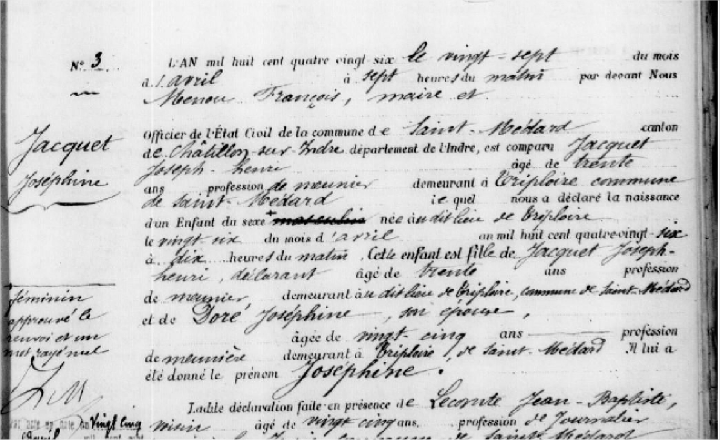 N° 3
L'AN mil huit cent quatre vingt-six le vingt-sept du mois
d'avril à sept heures du matin par devant Nous
Menou François, maire et
Jacquet
Joséphine
Officier de l'État Civil de la commune de Saint-Médard canton
de Châtillon-sur-Indre département de l'Indre, est comparu Jacquet
Joseph-henri âgé de trente
ans profession de meunier demeurant à Triploire commune
de Saint-Médard lequel nous a déclaré la naissance
d'un Enfant du sexe masculin née au dit lieu de Triploire
le vingt six du mois d'avril an mil huit cent quatre-vingt-six
à dix heures du matin. Cette enfant est fille de Jacquet Joseph-
henri, déclarant âgé de trente ans profession
de meunier, demeurant au dit lieu de Triploire, commune de Saint-Médard
et de Doré Joséphine, son épouse,
âgée de vingt cinq ans profession
de meunière demeurant à Triploire, de Saint-Médard Il lui a
été donné le prénom Joséphine.
féminin
approuvé le
renvoi et un
mot rayé nul
Ladite déclaration faite en présence de Lecomte Jean-Baptiste,
voisin âgé de vingt cinq ans, profession de Journalier
vingt cinq